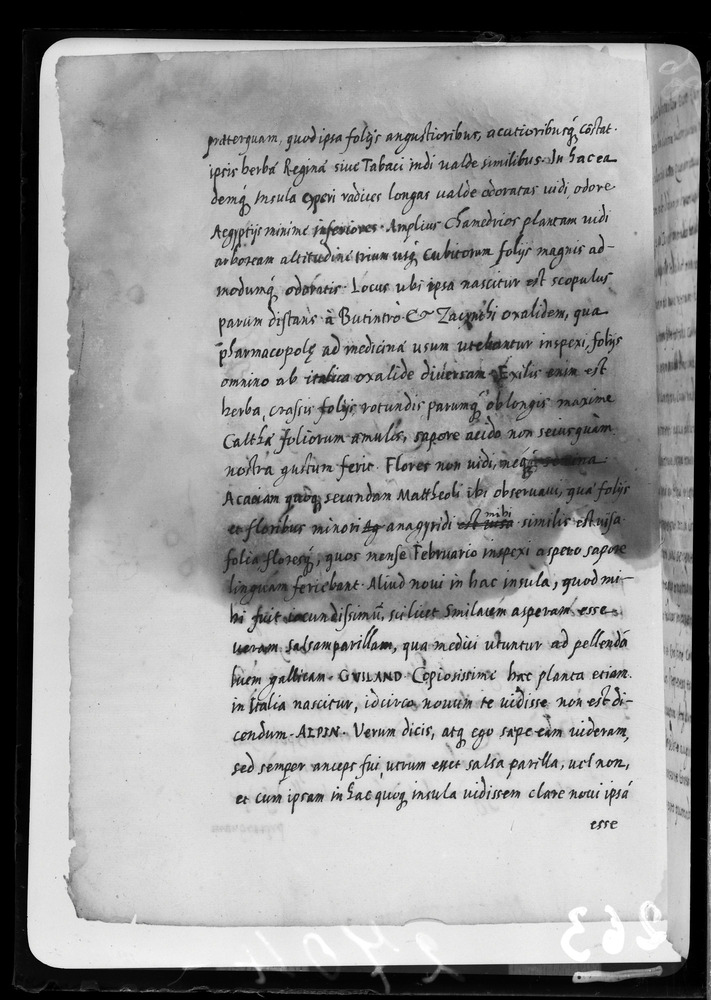 præterquam, quod ipsa folijs angustioribus, acutioribusq; cōstat.
ipsis herbā Reginā siue Tabaci indi ualde similibus. In hac ea
demq; Insula cyperi radices longas ualde odoratas uidi, odore
Aegyptijs minime inferiores. Amplius Chamedrios plantam uidi
arboream altitudine trium usq; cubitorum folijs magnis ad-
modumq; odoratis. Locus ubi ipsa nascitur est scopulus
parum distans à Butintrò. & Zacynthi oxalidem, qua
pharmacopolę ad medicinā usum utebantur inspexi, folijs
omnino ab italica oxalide diuersam. Exilis enim est
herba, crassis folijs rotundis, parumq; oblongis maxime
Calthā foliorum amulis, sapore acido non secus quàm
nostra gustum ferit. Flores non uidi, neq;
Acaciam quoq; secundam Mattheoli ibi obseruaui, quā folijs
et floribus minori anagyridi est uisa mihi similis est uisa
folia floresq;, quos mense Februario inspexi aspero sapore
linguam feriebant. Aliud noui in hac insula, quod mi-
hi fuit iucundissimū, scilicet Smilacem asperam esse
ueram salsamparillam, qua medici utuntur ad pellendā
luem gallicam. GVILAND. Copiosissime hac planta etiam
in Italia nascitur, idcirco nouum te uidisse non est di-
cendum. ALPIN. Verum dicis, atq; ego sape eām uideram,
sed semper anceps fui, utrum esset salsa parilla, uel non,
et cum ipsam in hac quoq; insula uidissem clare noui ipsā
esse
263